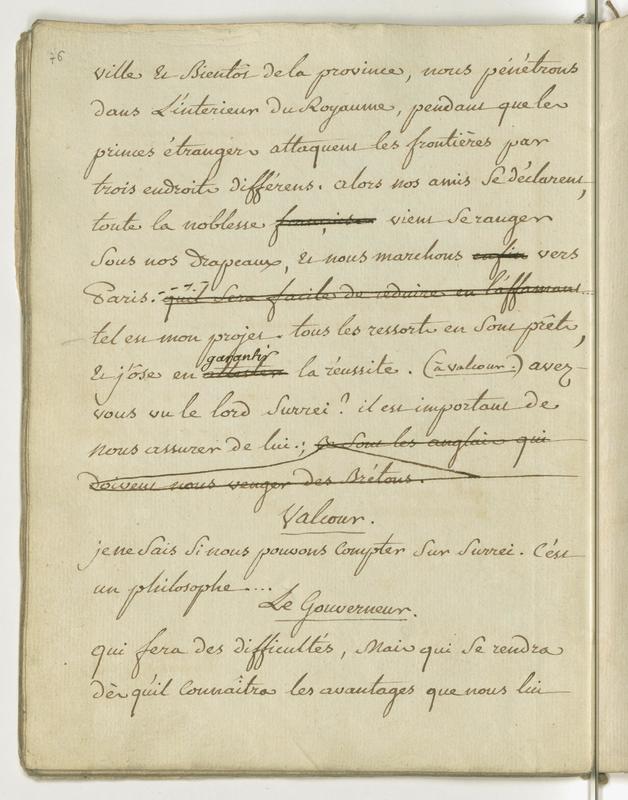 76
ville et Bientôt de la province, nous pénétrons
dans L'interieur du Royaume, pendant que les
princes étrangers attaquent les frontières par
trois endroits différens. alors nos amis Se déclarent,
toute la noblesse françoise vient Se ranger
Sous nos Drapeaux, et nous marchons enfin vers
Paris. qu'il Sera facile de réduire en l'affamant...
tel est mon projet. tous les ressorts en Sont prêts,
garantir
et j'ôse en attester la réussite. (à valcour.) avez-
vous vu le lord Surrei? il est important de
nous assurer de lui.; ce Sont les anglais qui
doivent nous venger des Brétons.
Valcour.
je ne Sais Si nous pouvons Compter Sur Surrei. C'est
un philosophe....
Le Gouverneur.
qui fera des difficultés, Mais qui Se rendra
dès qu'il Connaîtra les avantages que nous lui